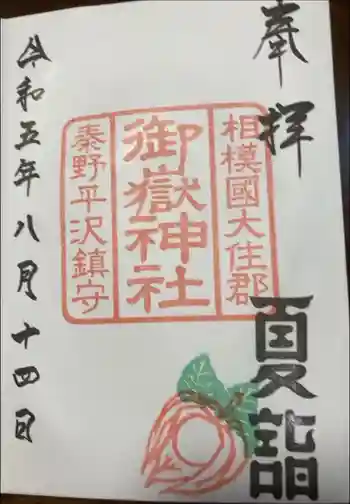 奉拝
夏詣
相模國大住郡
御嶽神社
秦野平沢鎮守
令和五年八月十四日